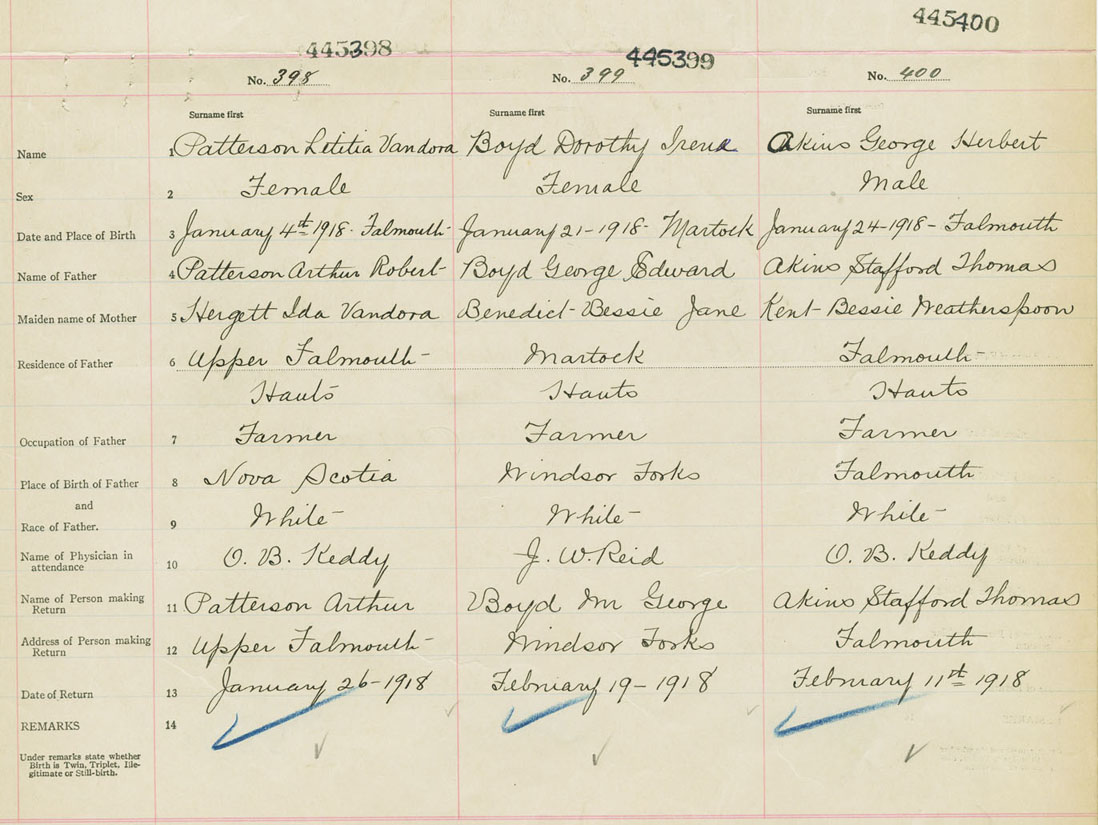 445398 445399 445400
No. 398 No. 399 No. 400
Surname first Surname first Surname first
Name 1 Patterson Letitia Vandora Boyd Dorothy Irena Akins George Herbert
Sex 2 Female Female Male
Date and Place of Birth 3 January 4th 1918 - Falmouth - January 21 - 1918 - Martock January 24 - 1918 - Falmouth
Name of Father 4 Patterson Arthur Robert - Boyd George Edward Akins Stafford Thomas
Maiden name of Mother 5 Hergett Ida Vandora Benedict - Bessie Jane Kent - Bessie Weatherspoon
Residence of Father 6 Upper Falmouth - Martock Falmouth -
Hants Hants Hants
Occupation of Father 7 Farmer Farmer Farmer
Place of Birth of Father 8 Nova Scotia Windsor Forks Falmouth
and
Race of Father. 9 White - White - White -
Name of Physician in attendance 10 O. B. Keddy J. W. Reid O. B. Keddy
Name of Person making Return 11 Patterson Arthur Boyd Mr George Akins Stafford Thomas
Address of Person making Return 12 Upper Falmouth - Windsor Forks Falmouth
Date of Return 13 January 26 - 1918 February 19 - 1918 February 11st 1918
REMARKS 14
Under remarks state whether
Birth is Twin, Triplet, Ille-
gitimate or Still-birth.